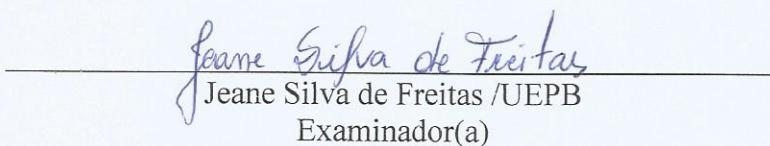 Jeane Silva de Freitas
Jeane Silva de Freitas /UEPB
Examinador(a)